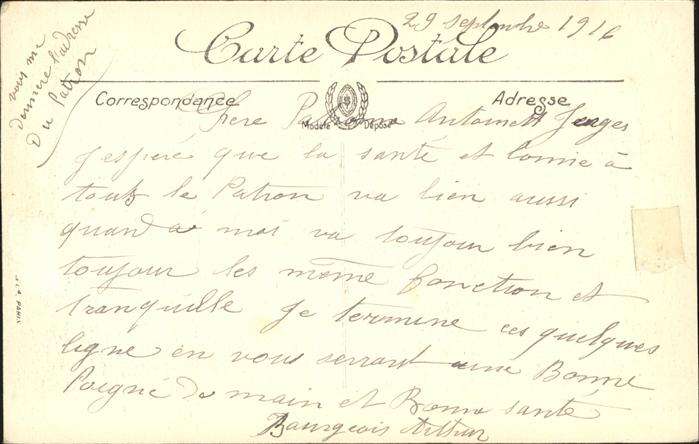 29 septembre 1916
Carte Postale
vous me
Donnerez l'adresse
Du Patron
Correspondance
Adresse
Modèle Déposé
Chere Patronne Antoinett
J'espere que la santé et bonne à
touts le Patron va bien aussi
quand à moi va toujour bien
toujour les même fonction et
tranquille Je termine ces quelques
ligne en vous serrant une Bonne
Poigné de main et Bonne santé
Bourgeois Arthur
PARIS